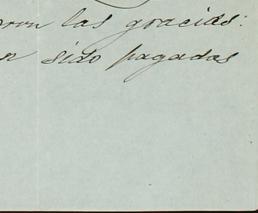 las gracias:
sido pagadas